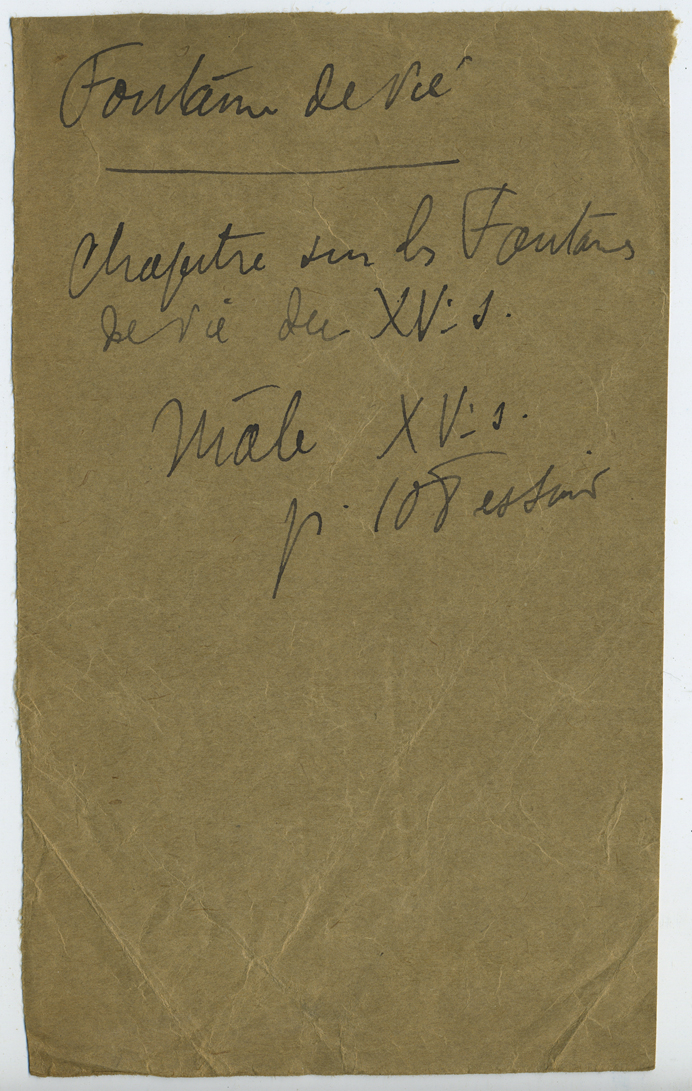 Fontaine de Vie
Chapitre sur les Fontaines
de Vie du XVe s.
Mâle XVe s.
p. 108 et suiv